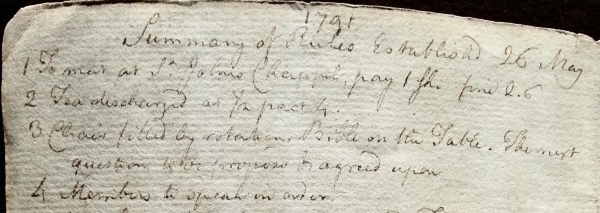 1791
Summary of Rules Established 26 May
1 To meet at Sr. Johns Chappel, pay 1 sh. fine 2.6
2 Tea discharged at ½ past 4.
3 Chair filled by rotation. Bible on the Table. The next
question to be proposed & agreed upon
4 Members to speak in order